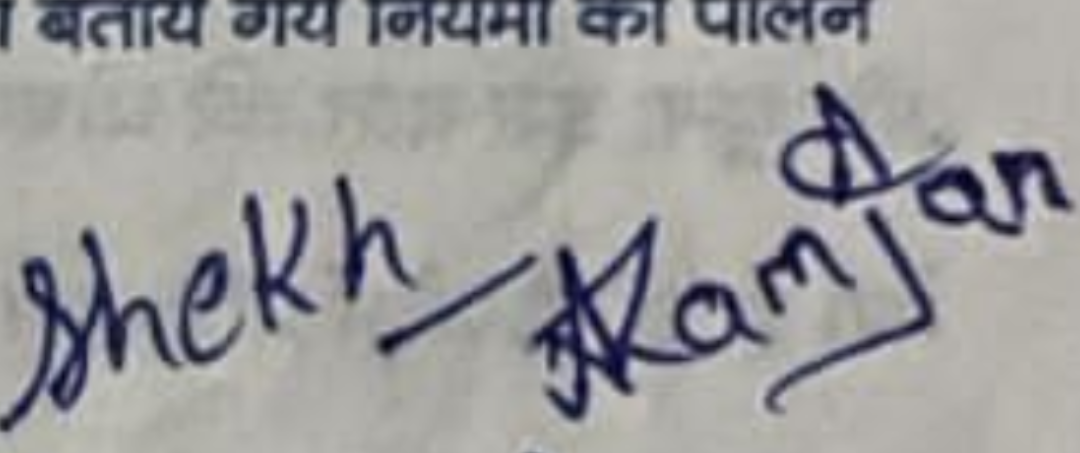 बताये गये नियमों का पालन
Shekh Ramjan